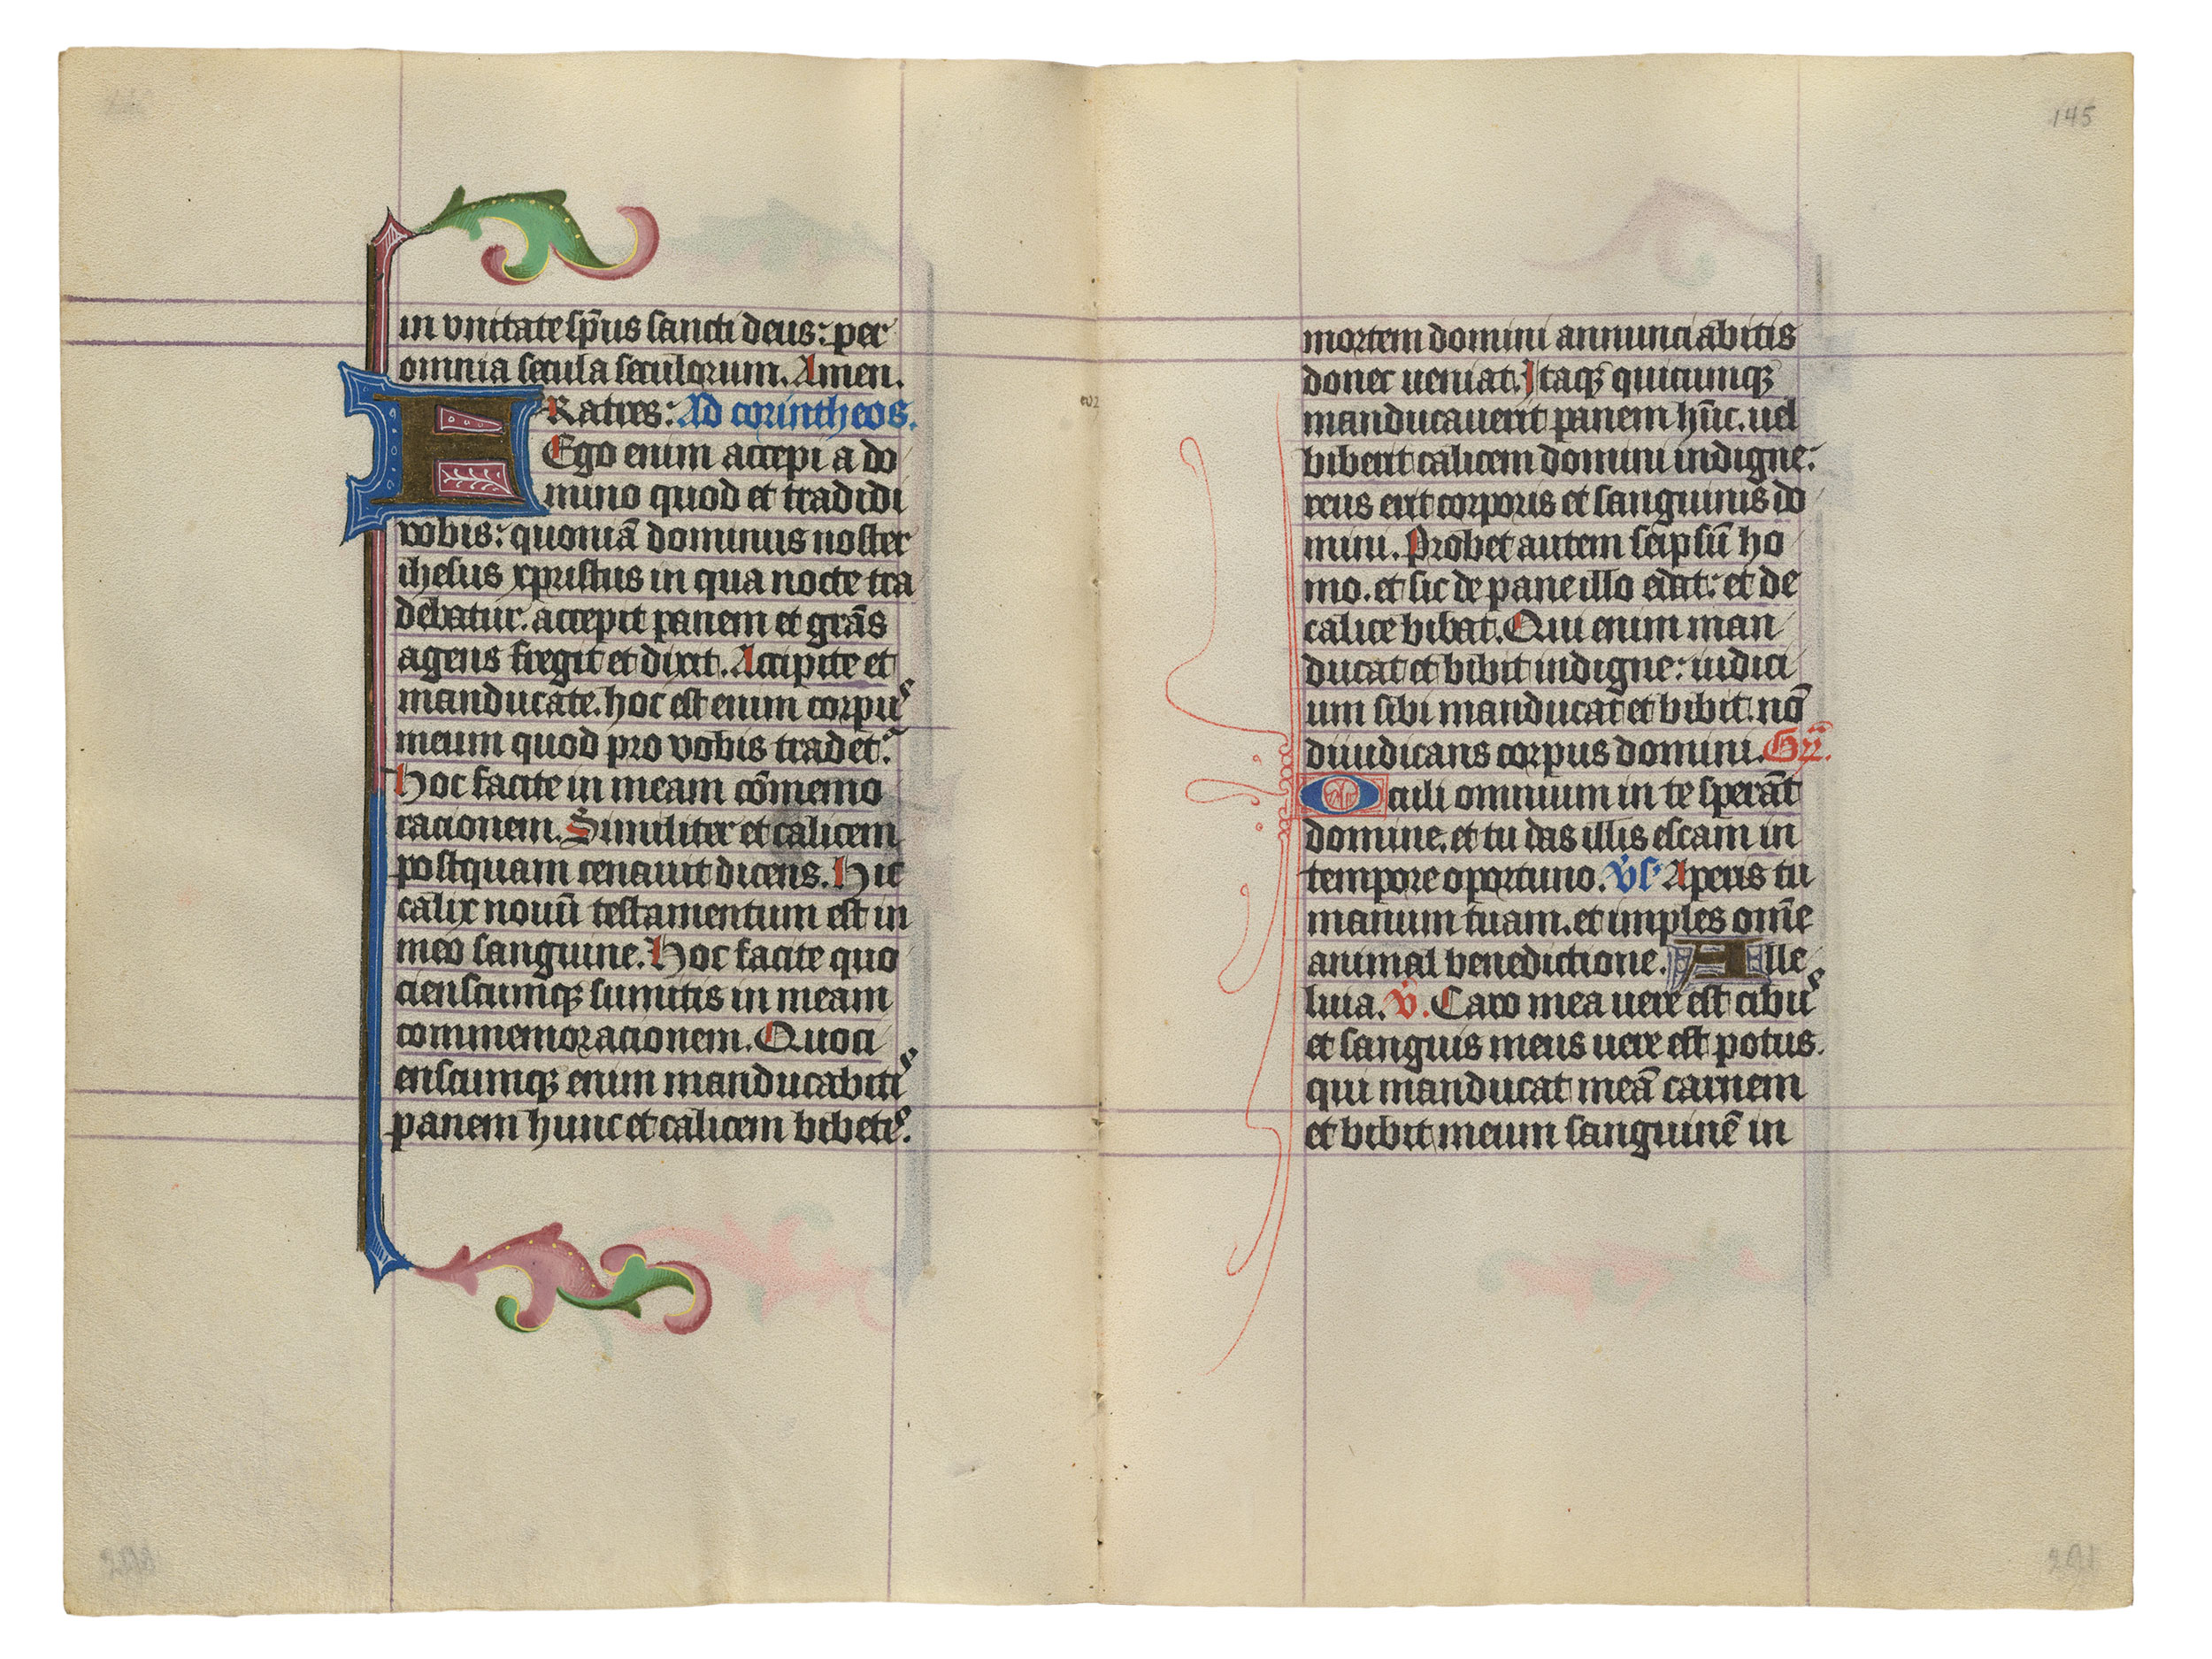 145
in vnitate sp̄us sancti deus: per
omnia secula seculorum. Amen.
FRatres: Ad corintheos.
Ego enim accepi a do
mino quod et tradidi
vobis: quoniā dominus noster
ihesus xpristus in qua nocte tra
debatur. accepit panem et grās
agens fregit et dixit. Accipite et
manducate. hoc est enim corpus
meum quod pro vobis tradet᷑.
Hoc facite in meam cōmemo
racionem. Similiter et calicem
postquam cenauit dicens. Hic
calix nouū testamentum est in
meo sanguine. Hoc facite quo
cienscumqꝫ sumitis in meam
commemoracionem. Quoci
enscumqꝫ enim manducabitis
panem hunc et calicem bibetis.
mortem domini annunciabitis
donec ueniat. Itaqꝫ quicumqꝫ
manducauerit panem hūc. uel
biberit calicem domini indigne:
reus erit corporis et sanguinis do
mini. Probet autem seipsū ho
mo. et sic de pane illo edat: et de
calice bibat. Qui enim man
ducat et bibit indigne: iudici
um sibi manducat et bibit. nō
diiudicans corpus domini. Gr̄.
Oculi omnium in te sperāt
domine. et tu das illis escam in
tempore oportuno. vs Aperis tu
manum tuam. et imples om̄e
animal benedictione. Alle
luia. v̄. Caro mea uere est cibus
et sanguis meus uere est potus.
qui manducat meā carnem
et bibit meum sanguinē in